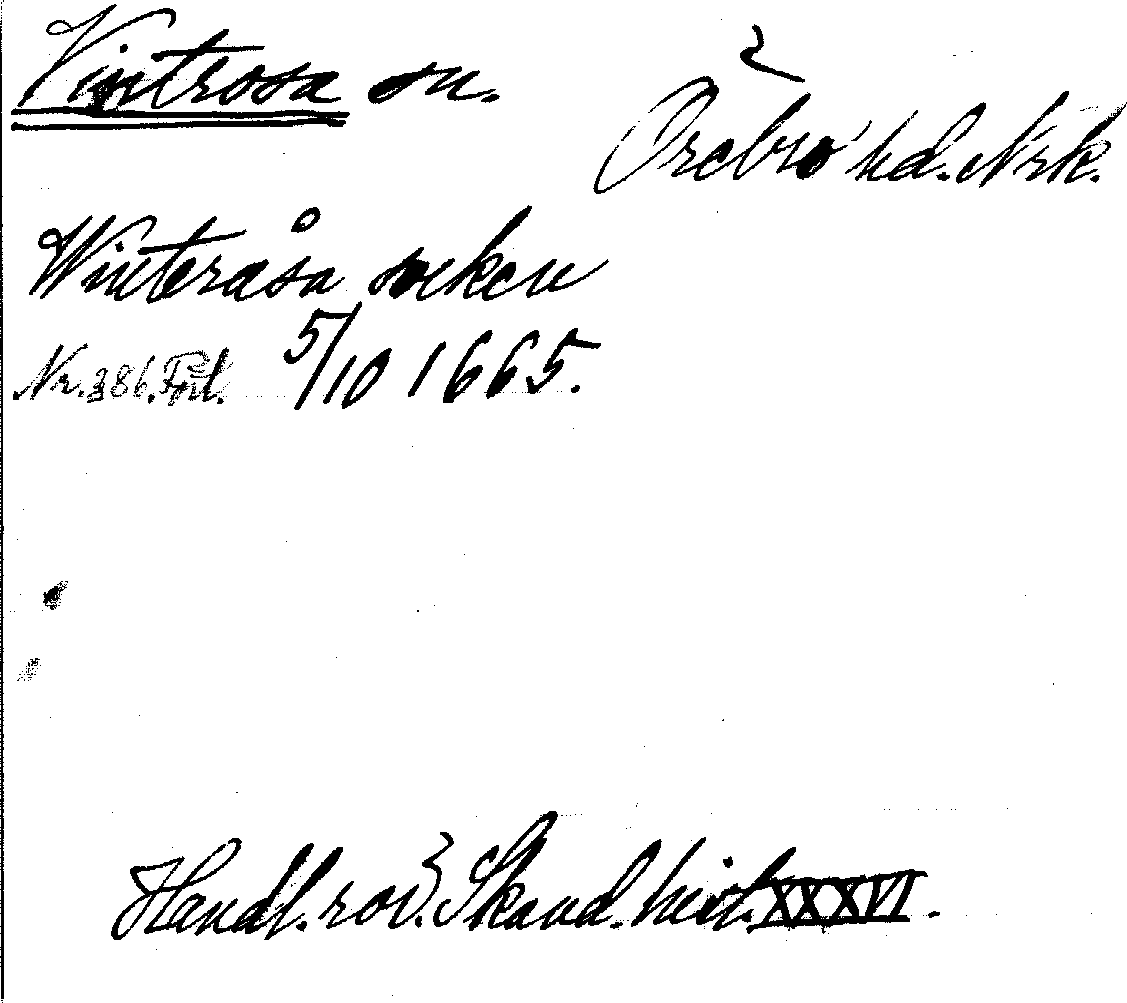 Vintrosa sn.
Örebro hd. Nrk.
Winteråsa soken
Nr. 386. Förl. 5/10 1665.
Handl. rör. Skand. hist. XXXVI.